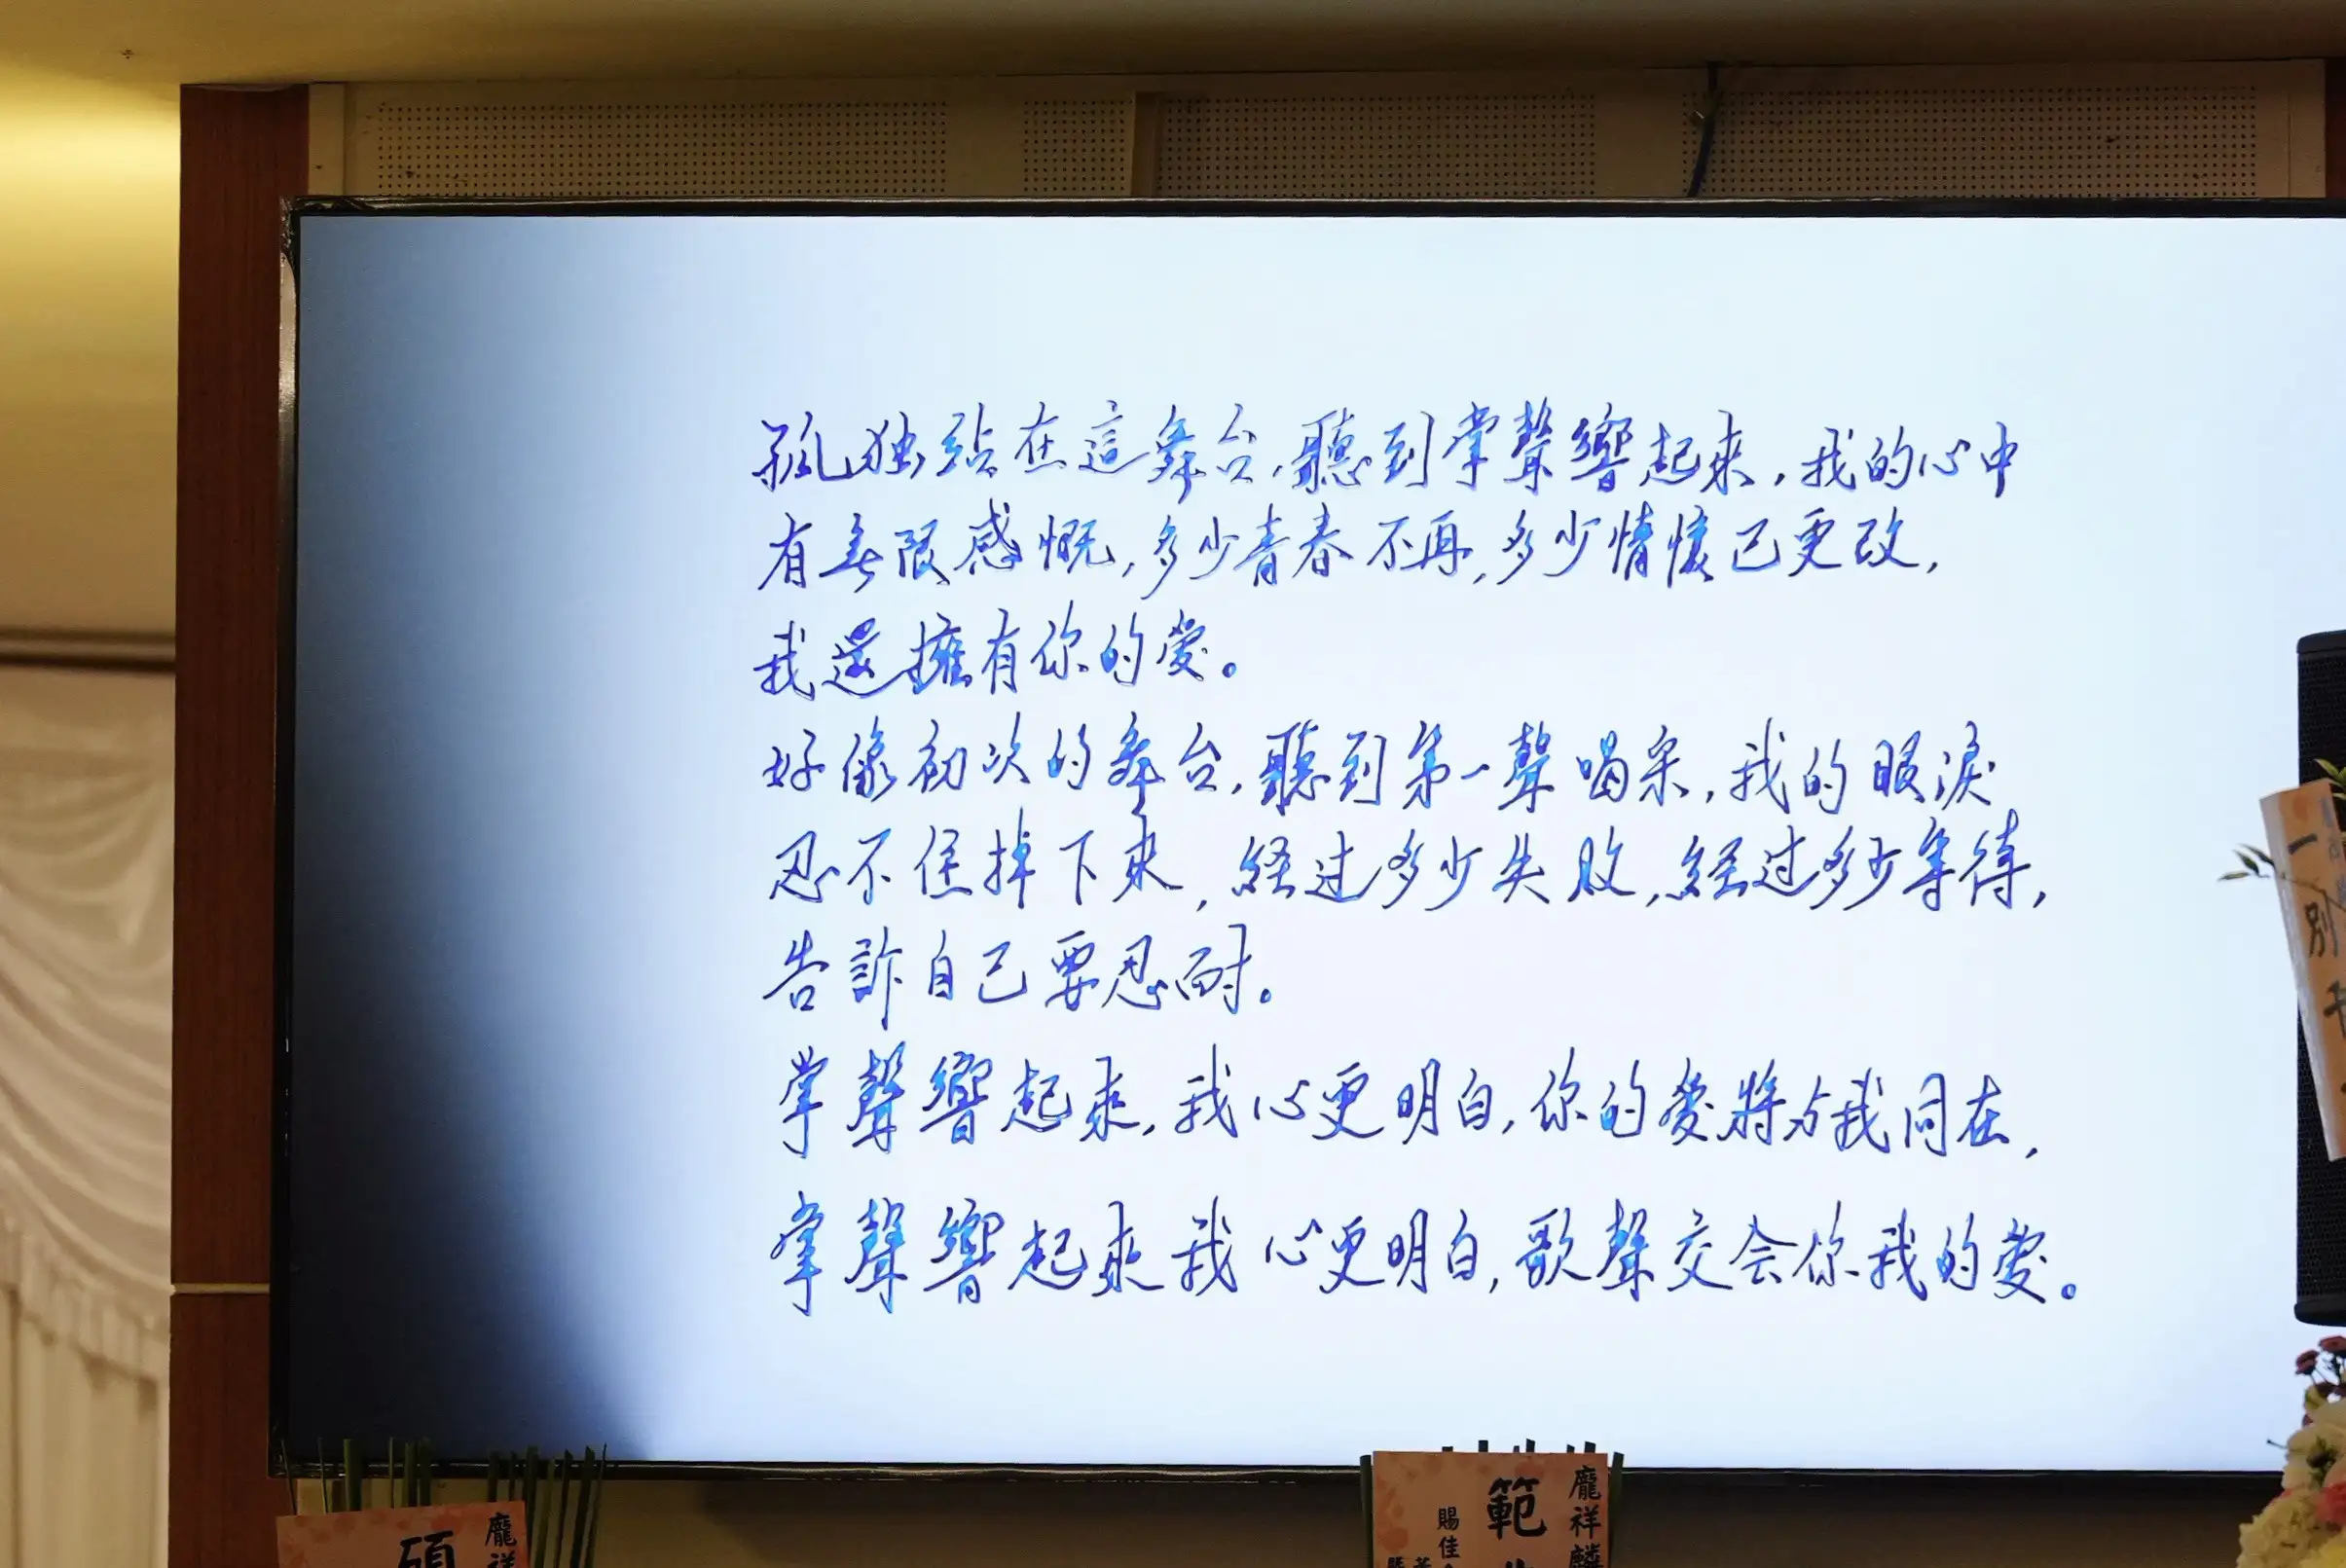 孤独站在這舞台,聽到掌聲響起來,我的心中
有無限感慨,多少青春不再,多少情懷已更改,
我還擁有你的愛。
好像初次的舞台,聽到第一聲喝采,我的眼淚
忍不住掉下來,経过多少失敗,経过多少等待,
告訴自己要忍耐。
掌聲響起來,我心更明白,你的愛將与我同在,
掌聲響起來我心更明白,歌聲交会你我的愛。
一
別
千
龐祥
碩
龐祥麟
範
賜佳